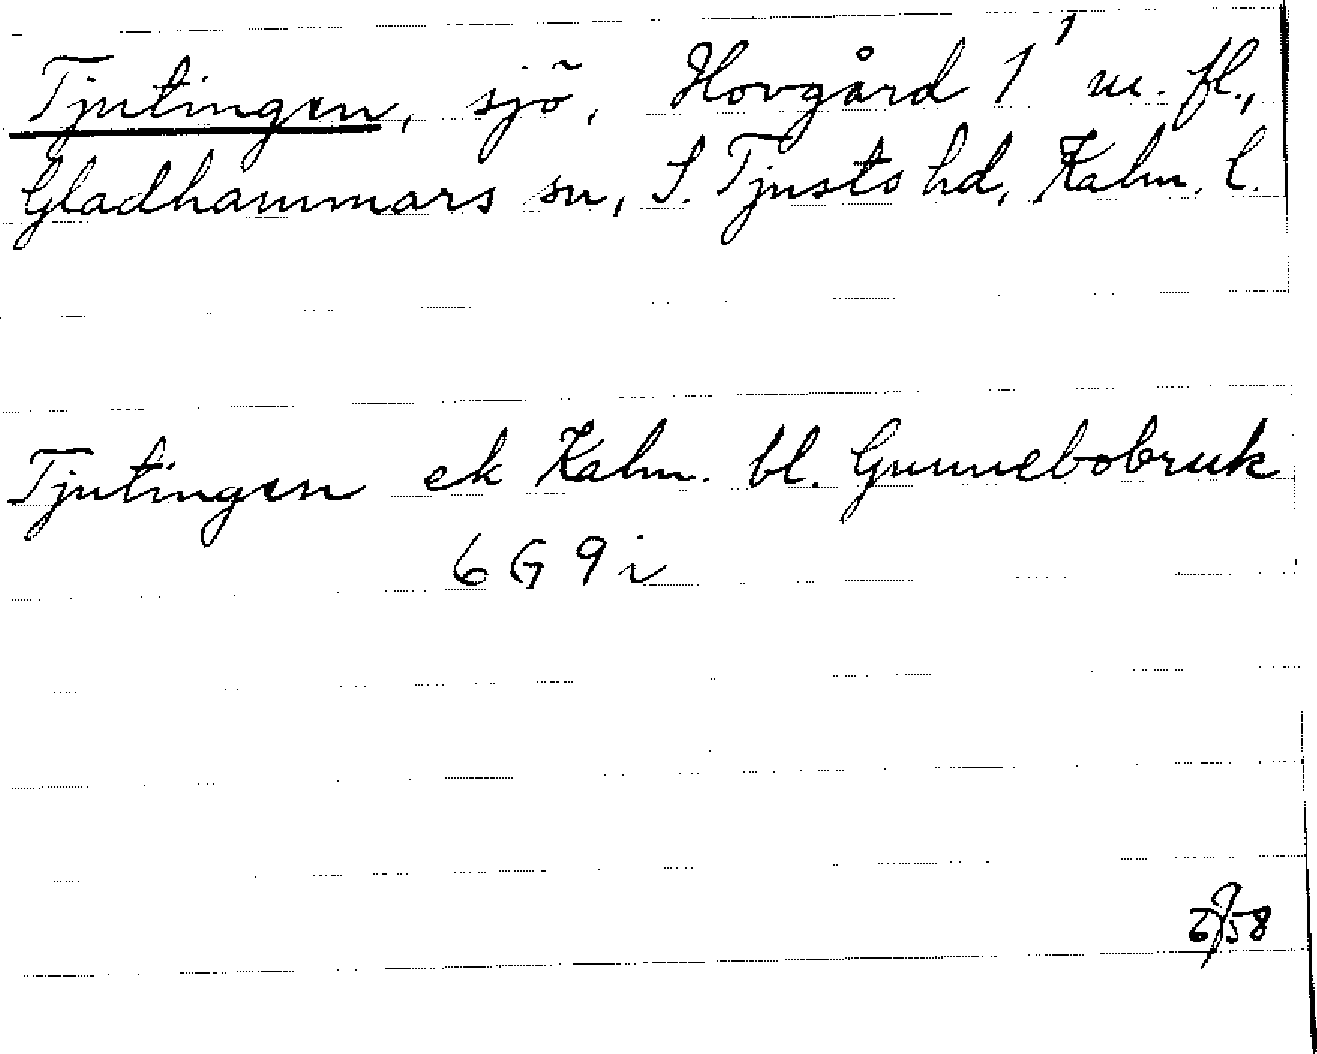 Tjutingen, sjö, Hovgård 1¹ m. fl.,
Gladhammars sn, S. Tjusts hd, Kalm. l.
Tjutingen ek Kalm. bl. Gunnebobruk
6 G 9 i